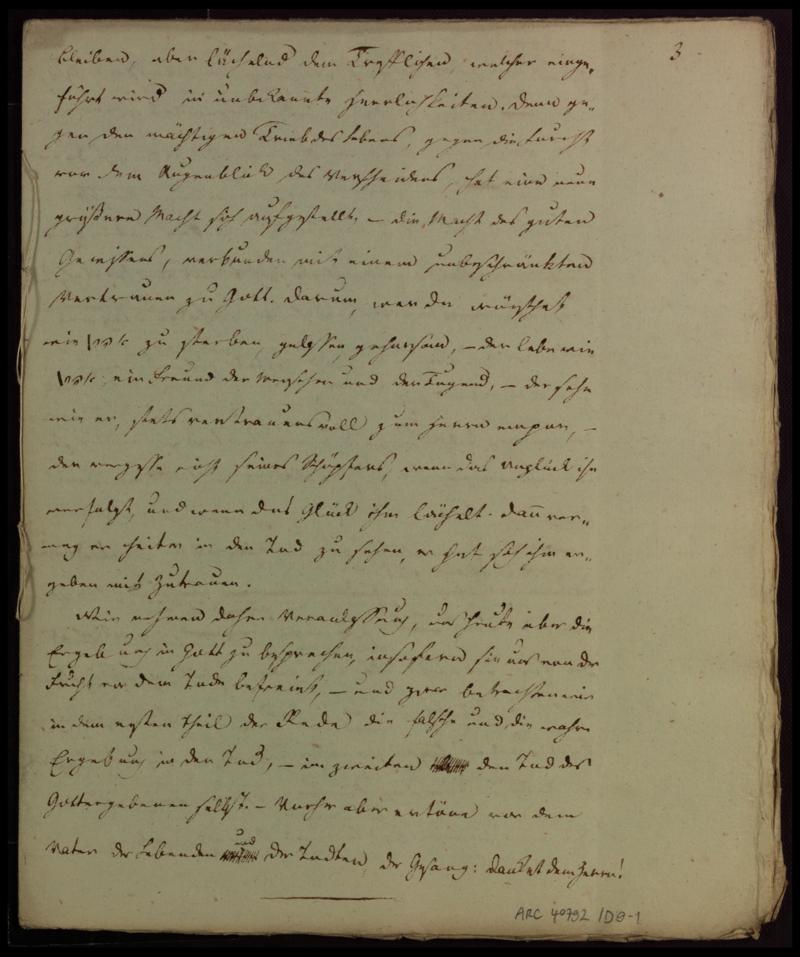 3
bleiben, aber lächelnd dem Trefflichen, welcher einge-
führt wird in unbekannte Herrlichkeiten. Denn ge-
gen den mächtigen Trieb des Lebens, gegen die Furcht
vor dem Augenblick des Verscheidens, hat eine neue
größere Macht sich aufgestellt, – die Macht des guten
Gewissens, verbunden mit einem unbeschränkten
Vertrauen zu Gott. Darum, wer da wünschet
wie zu sterben, gelassen, gehorsam, – der lebe wie
ein Freund der Menschen und der Tugend, – der sehe
wie er, stets vertrauensvoll zum Herrn empor, –
der vergesse nicht seines Schöpfers, wenn das Unglück ihn
verfolgt, und wenn das Glück ihm lächelt. Dann ver-
mag er heiter in den Tod zu sehen, er hat sich ihm er-
geben mit Zutrauen.
Wir nehmen daher Veranlassung, uns heute über die
Ergebung in Gott zu besprechen, insofern sie uns von der
Furcht vor dem Tode befreiet, – und zwar betrachten wir
in dem ersten Theil der Rede die falsche und die wahre
Ergebung in den Tod, – im zweiten den Tod des
Gottergebenen selbst. – Vorher aber ertöne vor dem
Vater der Lebenden und der Todten, der Gesang: Danket dem Herrn!
ARC 40792 /D9-1